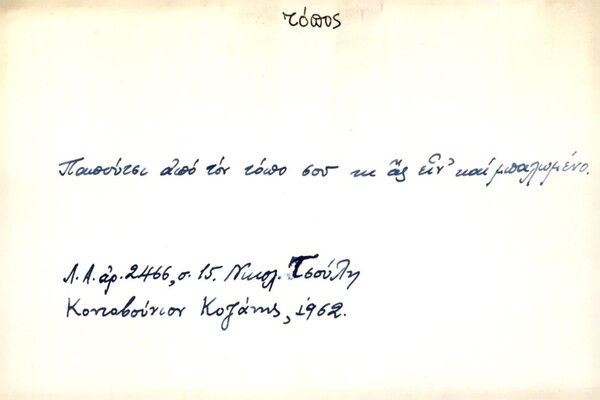 τόπος
Παπούτσι ἀπό τόν τόπο σου κι ἄς εἶν' καί μπαλωμένο.
Λ.Α. ἀρ. 2466, σ. 15. Νικολ. Τσούλη
Κονταβούνιον Κοζάνης, 1962.